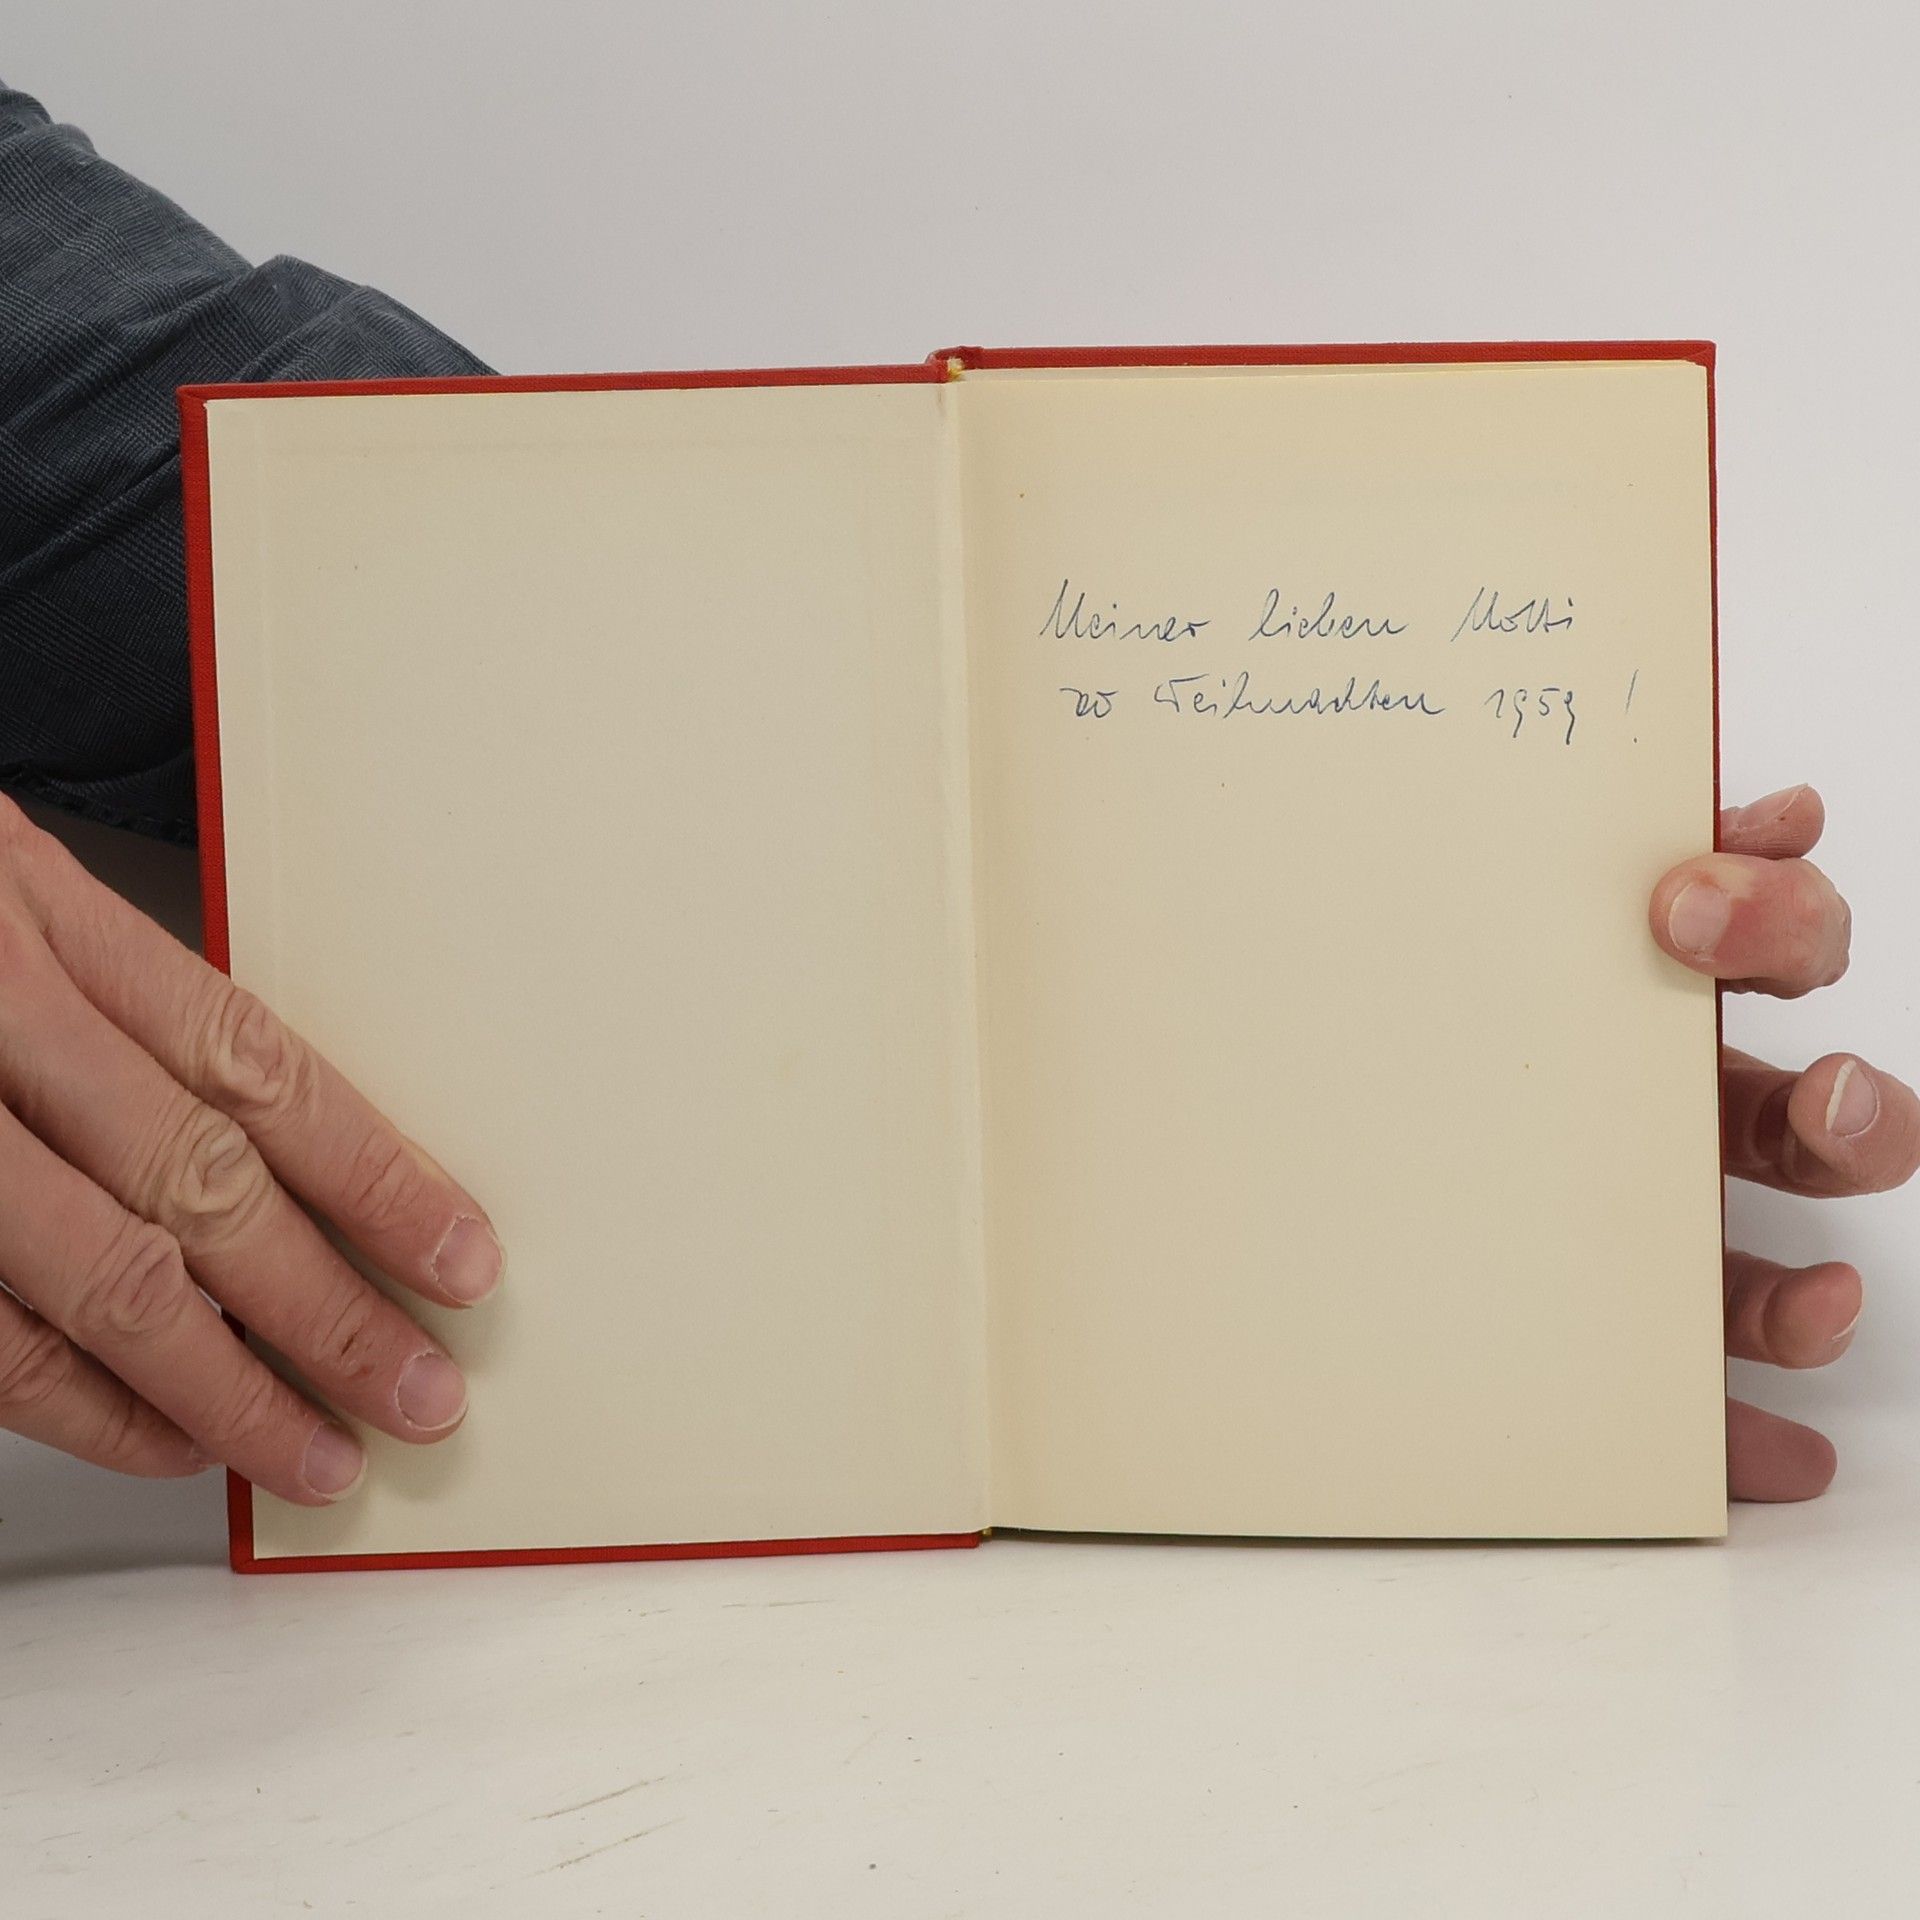 Meiner lieben Motti
zu Weihnachten 1959 !